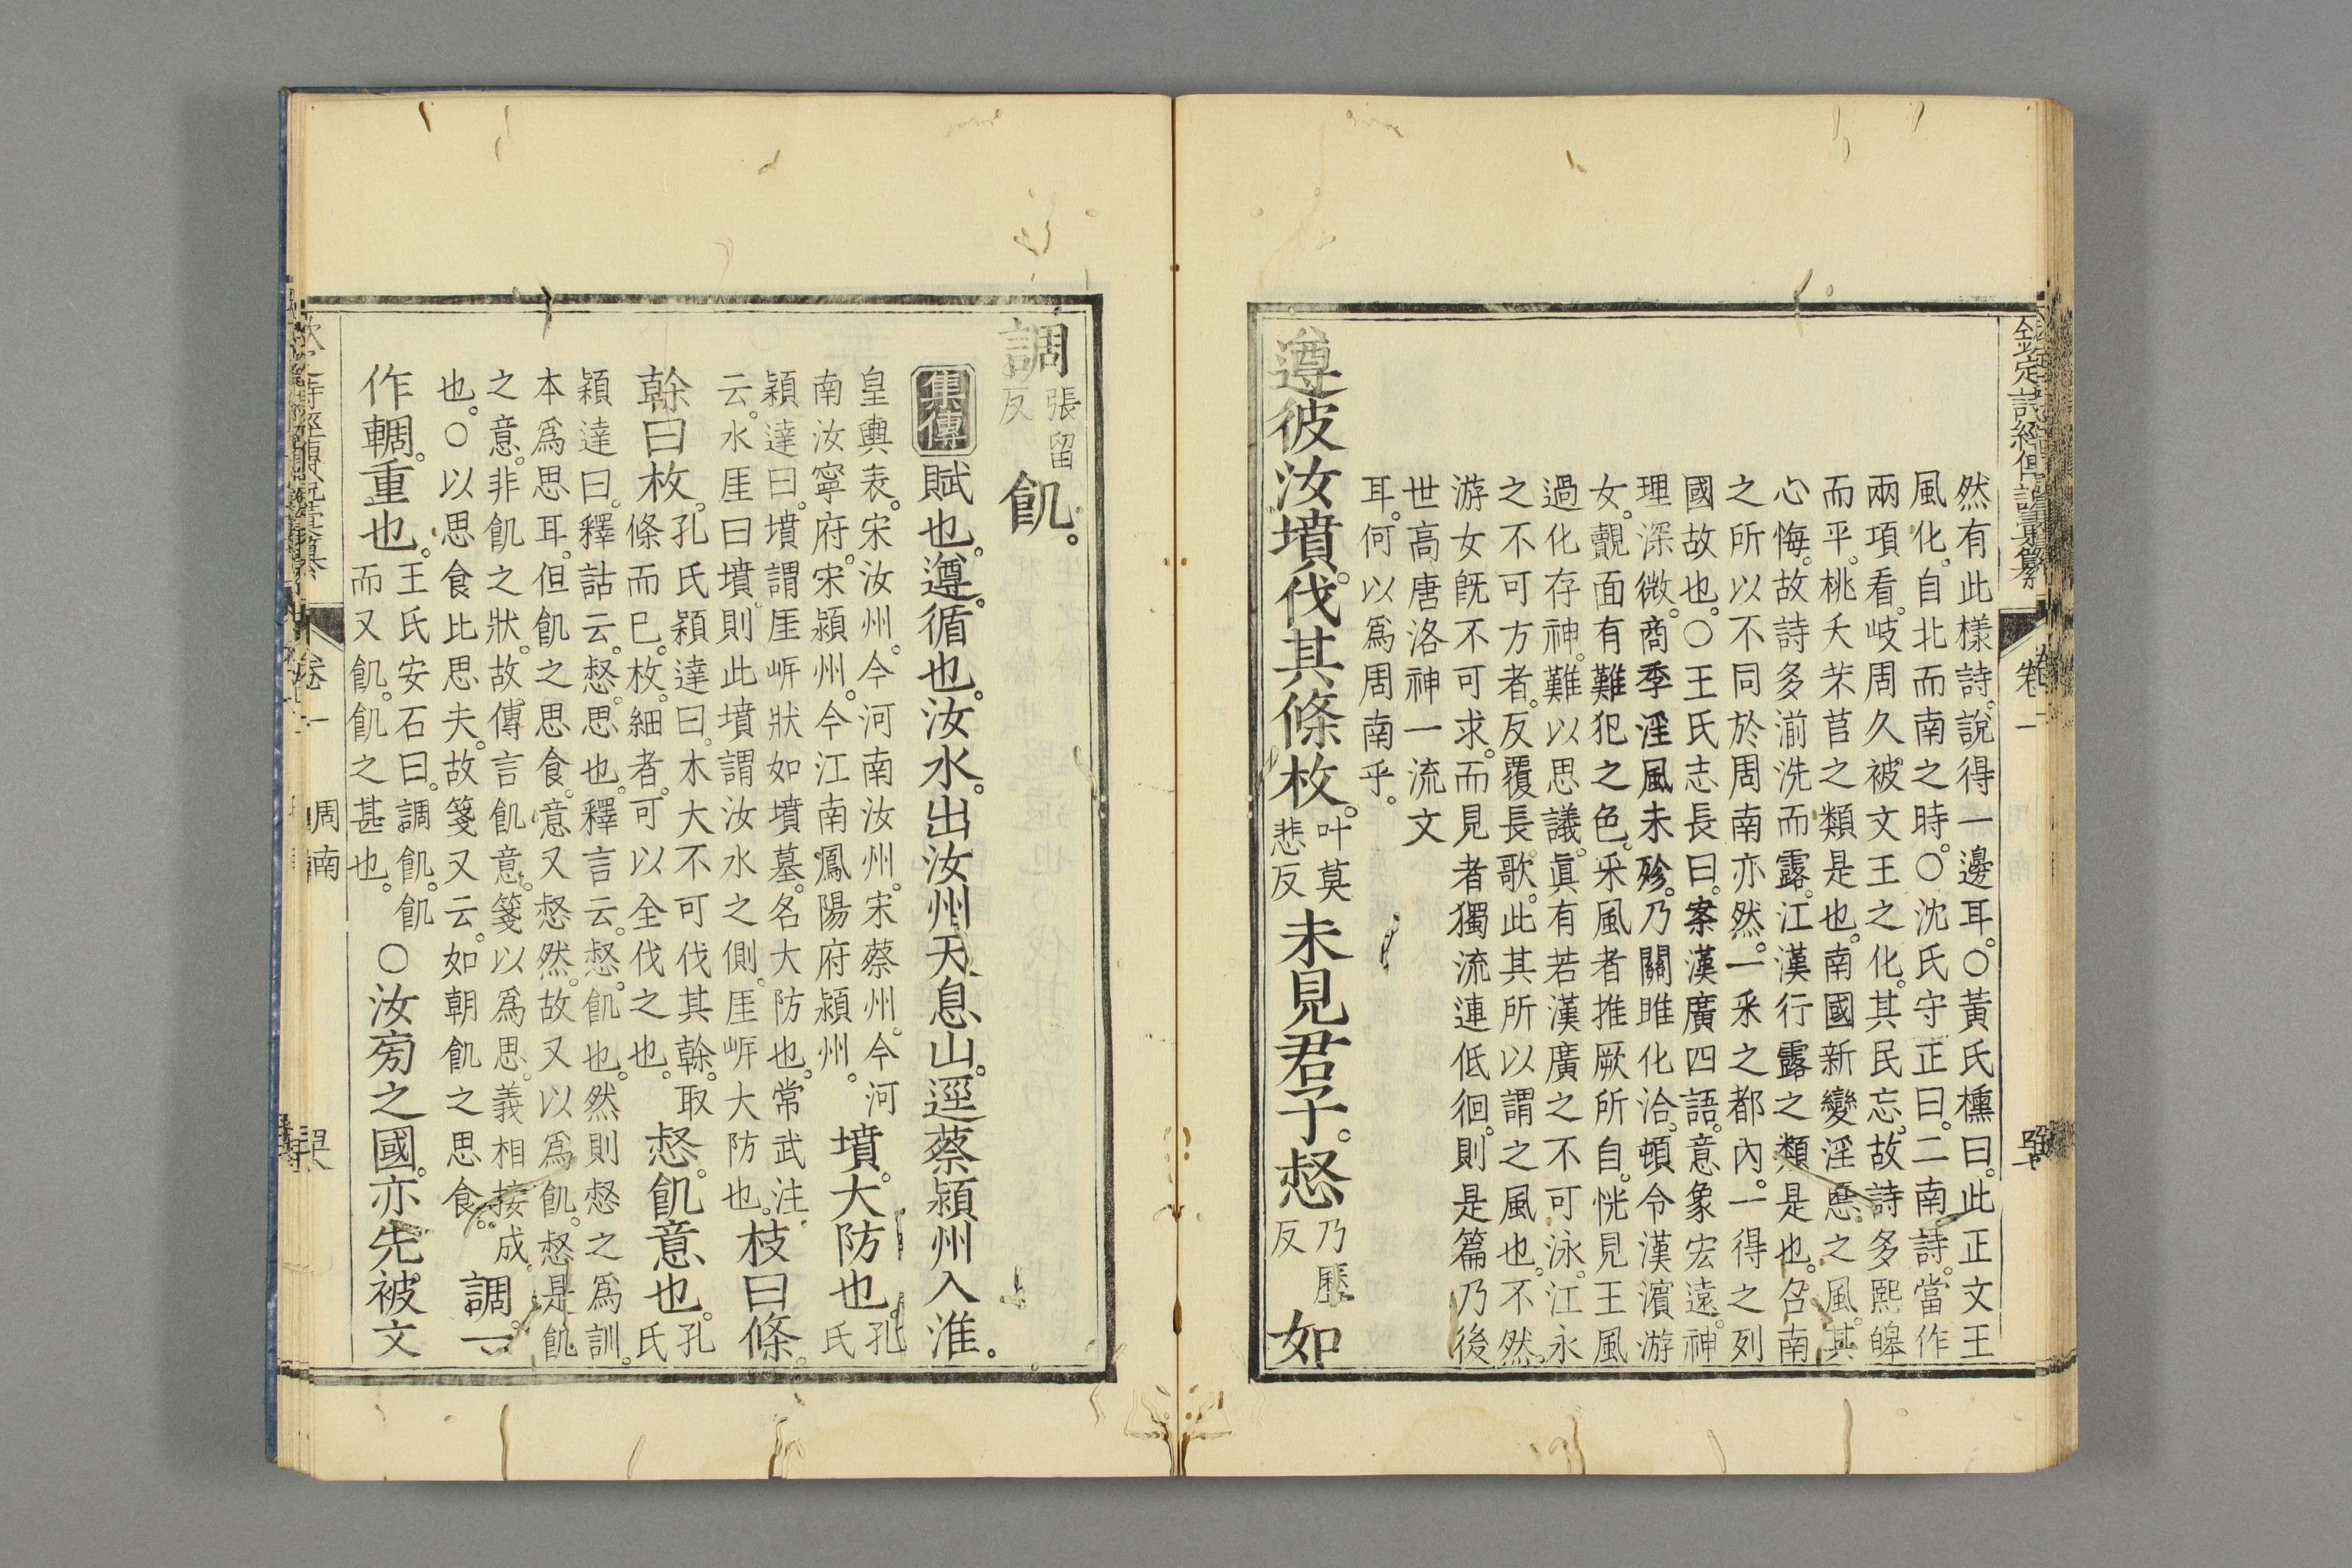 然有此樣詩。說一邊耳。○黃氏櫄曰。此正文王
風化。自北而南之時。○沈氏守正曰。二南詩。當作
兩項看。岐周久被文王之化。其民忘。故詩多熙皞
而平。桃夭芣苢之類是也。南國新變淫惡之風。其
心悔。故詩多湔洗而露。江漢行露之類是也。召南
之所以不同於周南亦然。一采之都內。一得之列
國故也。○王氏志長曰。案漢廣四語。意象宏遠。神
理深微。商季淫風未殄。乃關雎化洽。頓令漢濱游
女。靚面有難犯之色。采風者推厥所自。恍見王風
過化存神。難以思議。眞有若漢廣之不可泳。江永
之不可方者。反覆長歌。此其所以謂之風也。不然。
游女旣不可求。而見者獨流連低徊。則是篇乃後
世高唐洛神一流文
耳。何以爲周南乎。
遵彼汝墳。伐其條枚。叶莫悲反未見君子。惄乃歷反如
調張留反飢。
集傳 賦也。遵。循也。汝水。出汝州天息山。逕蔡潁州入淮。
皇輿表。宋汝州。今河南汝州。宋蔡州。今河
南汝寧府。宋潁州。今江南鳳陽府潁州。 墳。大防也。孔氏
穎達曰。墳謂厓岸狀如墳墓。名大防也。常武注
云。水厓曰墳。則此墳謂汝水之側。厓岸大防也。 枝曰條。
榦曰枚。孔氏穎達曰。木大不可伐其榦。取
條而已。枚。細者。可以全伐之也。 惄。飢意也。孔氏
穎達曰。釋詁云。惄。思也。釋言云。惄。飢也。然則惄之爲訓。
本爲思耳。但飢之思食。意又惄然。故又以爲飢。惄是飢
之意。非飢之狀。故傳言飢意。箋以爲思。義相接成
也。○以思食比思夫。故箋又云。如朝飢之思食。 調。一
作輖。重也。王氏安石曰。調飢。飢
而又飢。飢之甚也。 ○汝旁之國。亦先被文
卷一
周南